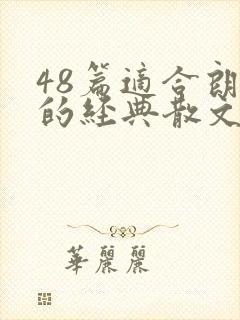 48篇適合朗
的經典散文
華麗麗